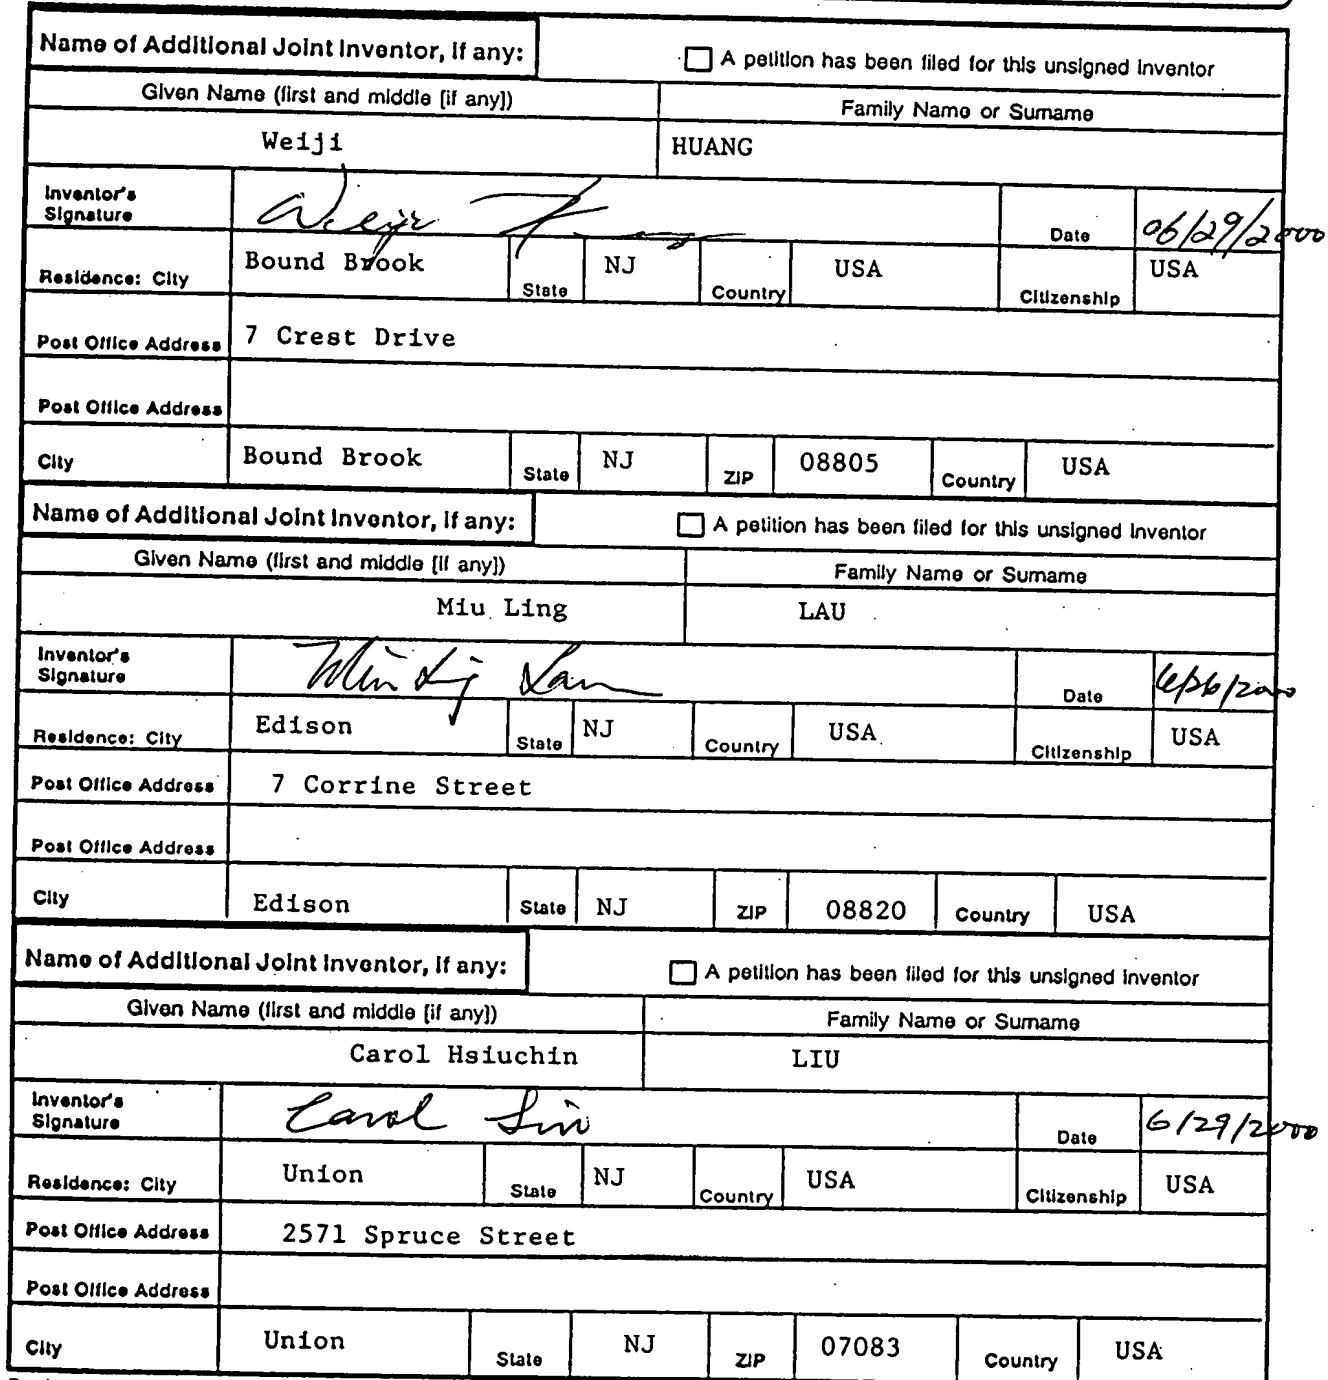 Name of Additional Joint Inventor, if any: A petition has been filed for this unsigned inventor
Given Name (first and middle [if any]) Family Name or Surname
Weiji HUANG
Inventor's Signature Weiji Huang Date 06/29/2000
Residence: City Bound Brook State NJ Country USA Citizenship USA
Post Office Address 7 Crest Drive
Post Office Address
City Bound Brook State NJ ZIP 08805 Country USA
Name of Additional Joint Inventor, if any: A petition has been filed for this unsigned inventor
Given Name (first and middle [if any]) Family Name or Surname
Miu Ling LAU
Inventor's Signature Miu Ling Lau Date 6/26/2000
Residence: City Edison State NJ Country USA Citizenship USA
Post Office Address 7 Corrine Street
Post Office Address
City Edison State NJ ZIP 08820 Country USA
Name of Additional Joint Inventor, if any: A petition has been filed for this unsigned inventor
Given Name (first and middle [if any]) Family Name or Surname
Carol Hsiuchin LIU
Inventor's Signature Carol Liu Date 6/29/2000
Residence: City Union State NJ Country USA Citizenship USA
Post Office Address 2571 Spruce Street
Post Office Address
City Union State NJ ZIP 07083 Country USA